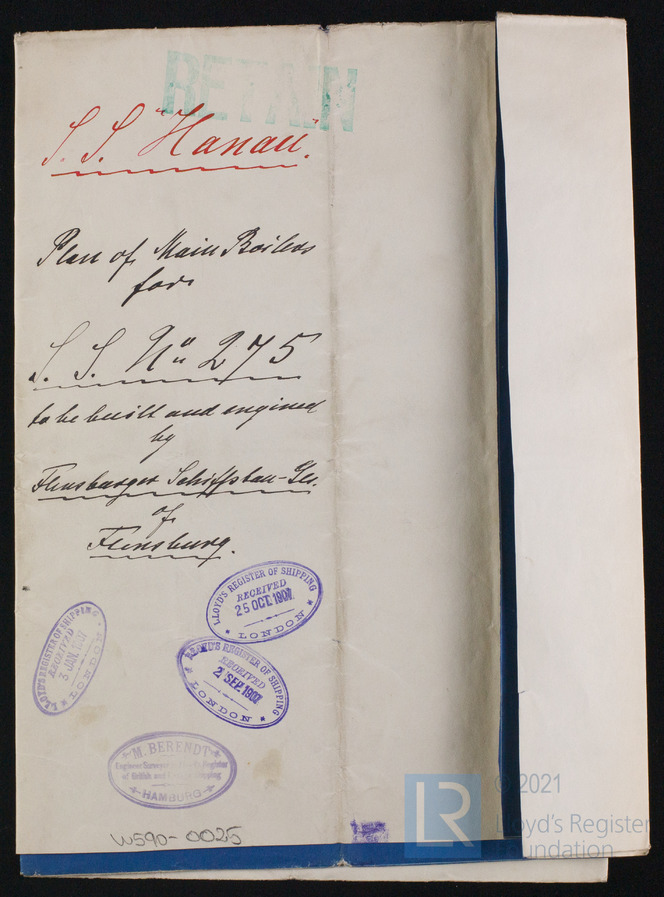 RETAIN
S. S. "Hanau".
Plan of Main Boilers
for
S. S. No 275
to be built and engined
by
Flensburger Schiffsbau-Ges.
of
Flensburg.
LLOYD'S REGISTER OF SHIPPING
RECEIVED
25 OCT. 1907
LONDON
LLOYD'S REGISTER OF SHIPPING
RECEIVED
2 SEP. 1907
LONDON
LLOYD'S REGISTER OF SHIPPING
RECEIVED
3 JAN.
LONDON
M. BERENDT
Engineer Surveyor to Lloyd's Register
of British and Foreign Shipping
HAMBURG
W590-0025
LR
© 2021
Lloyd's Register
Foundation